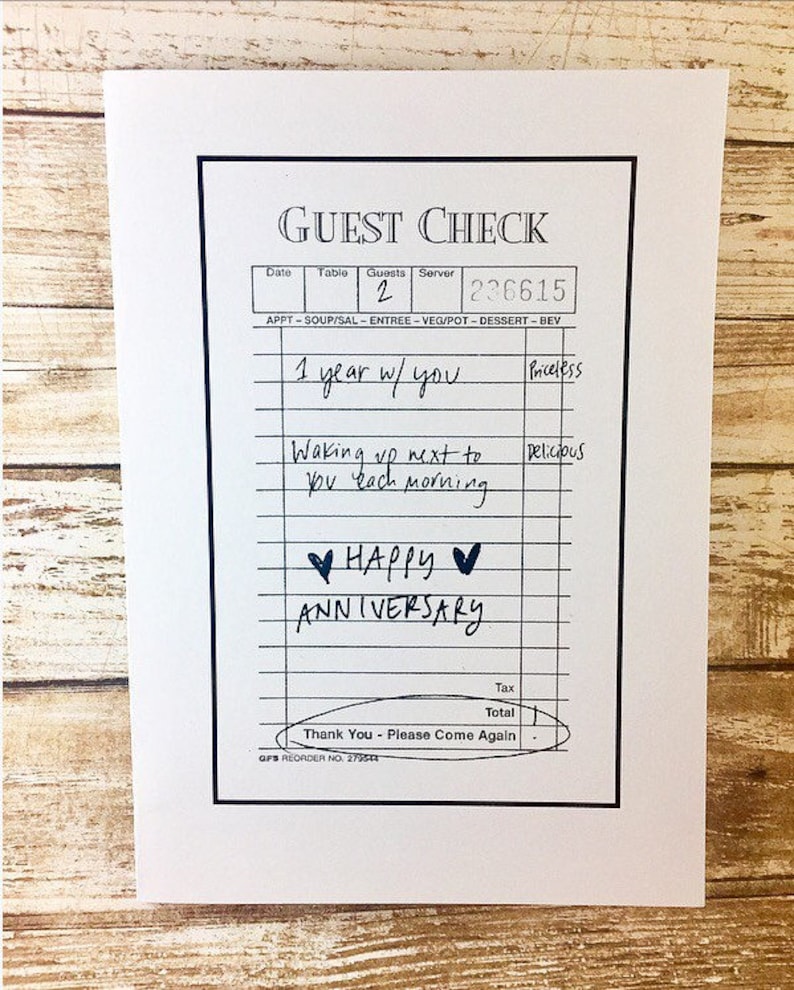 GUEST CHECK
Date Table Guests Server 236615
2
APPT – SOUP/SAL – ENTREE – VEG/POT – DESSERT – BEV
1 year w/ you Priceless
Waking up next to Delicious
you each morning
♥ HAPPY ♥
ANNIVERSARY
Tax
Total
Thank You - Please Come Again !
GFS REORDER NO. 279544